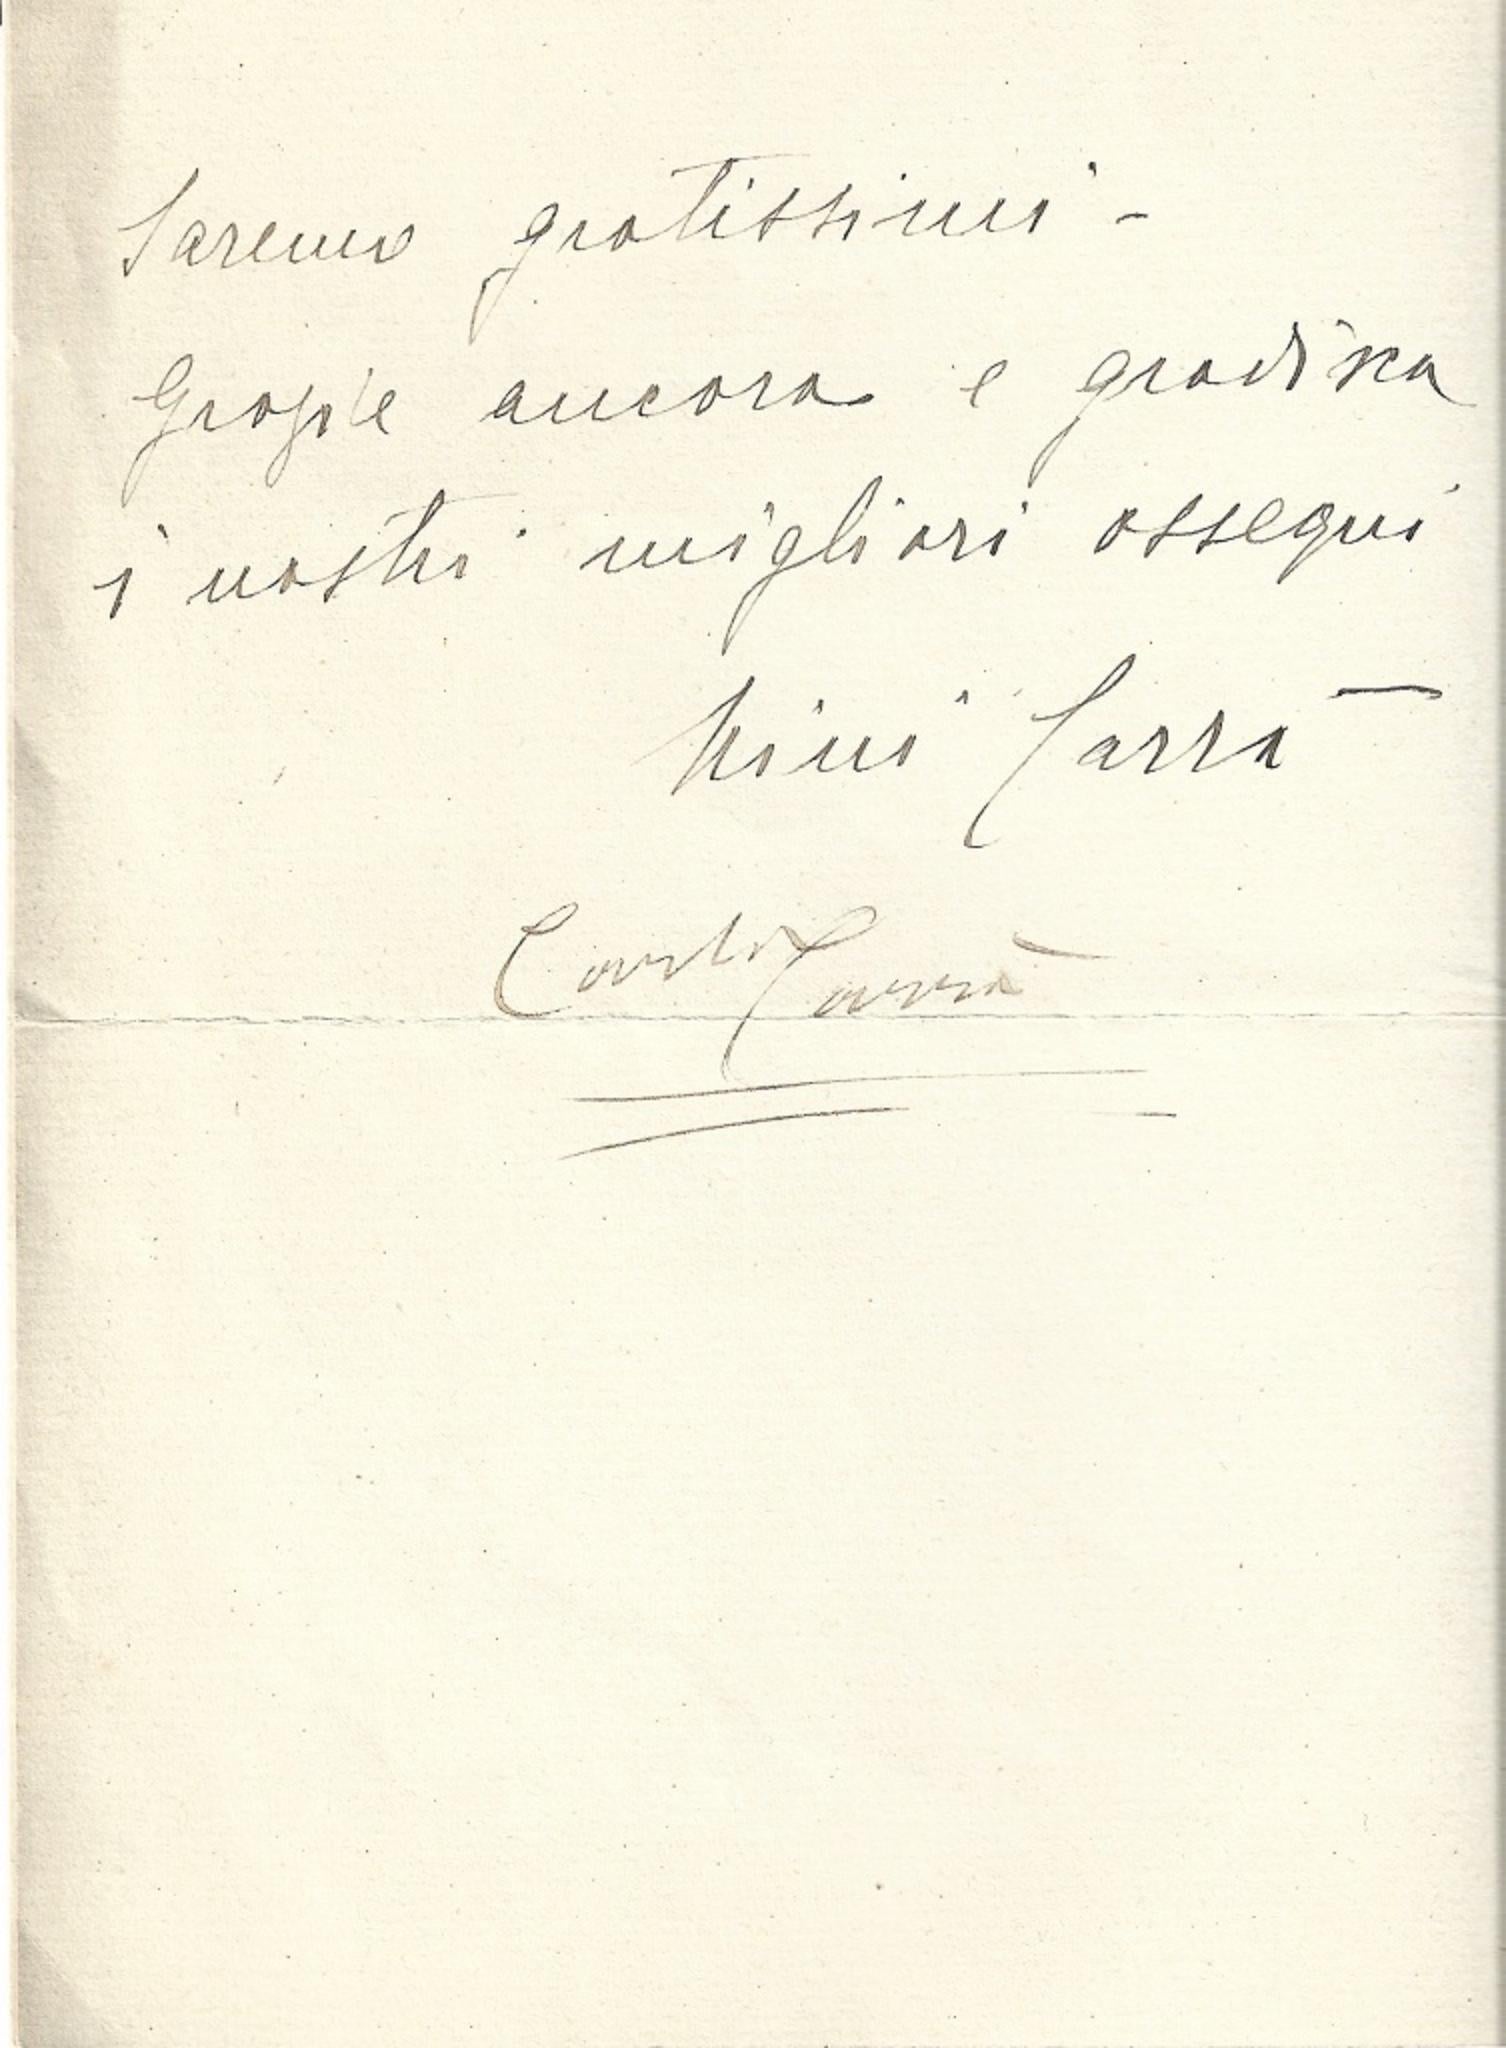 Saremo gratissimi -
Grazie ancora e gradisca
i nostri migliori ossequi
Nini Carrà
Carlo Carrà